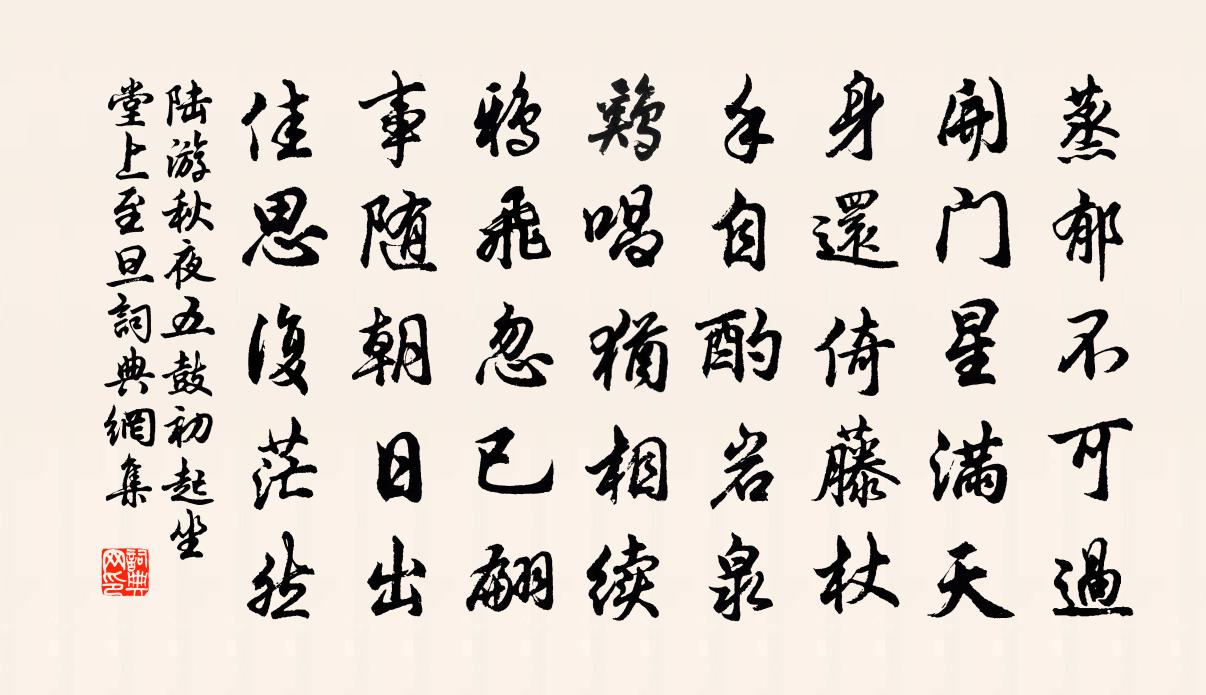 蒸郁不可過
開门星满天
身還倚藤杖
手自酌岩泉
鷄唱猶相续
鴉飛忽已翩
事随朝日出
佳思復茫然
陆游秋夜五鼓初起坐
堂上至旦詞典網集
詞典
网印